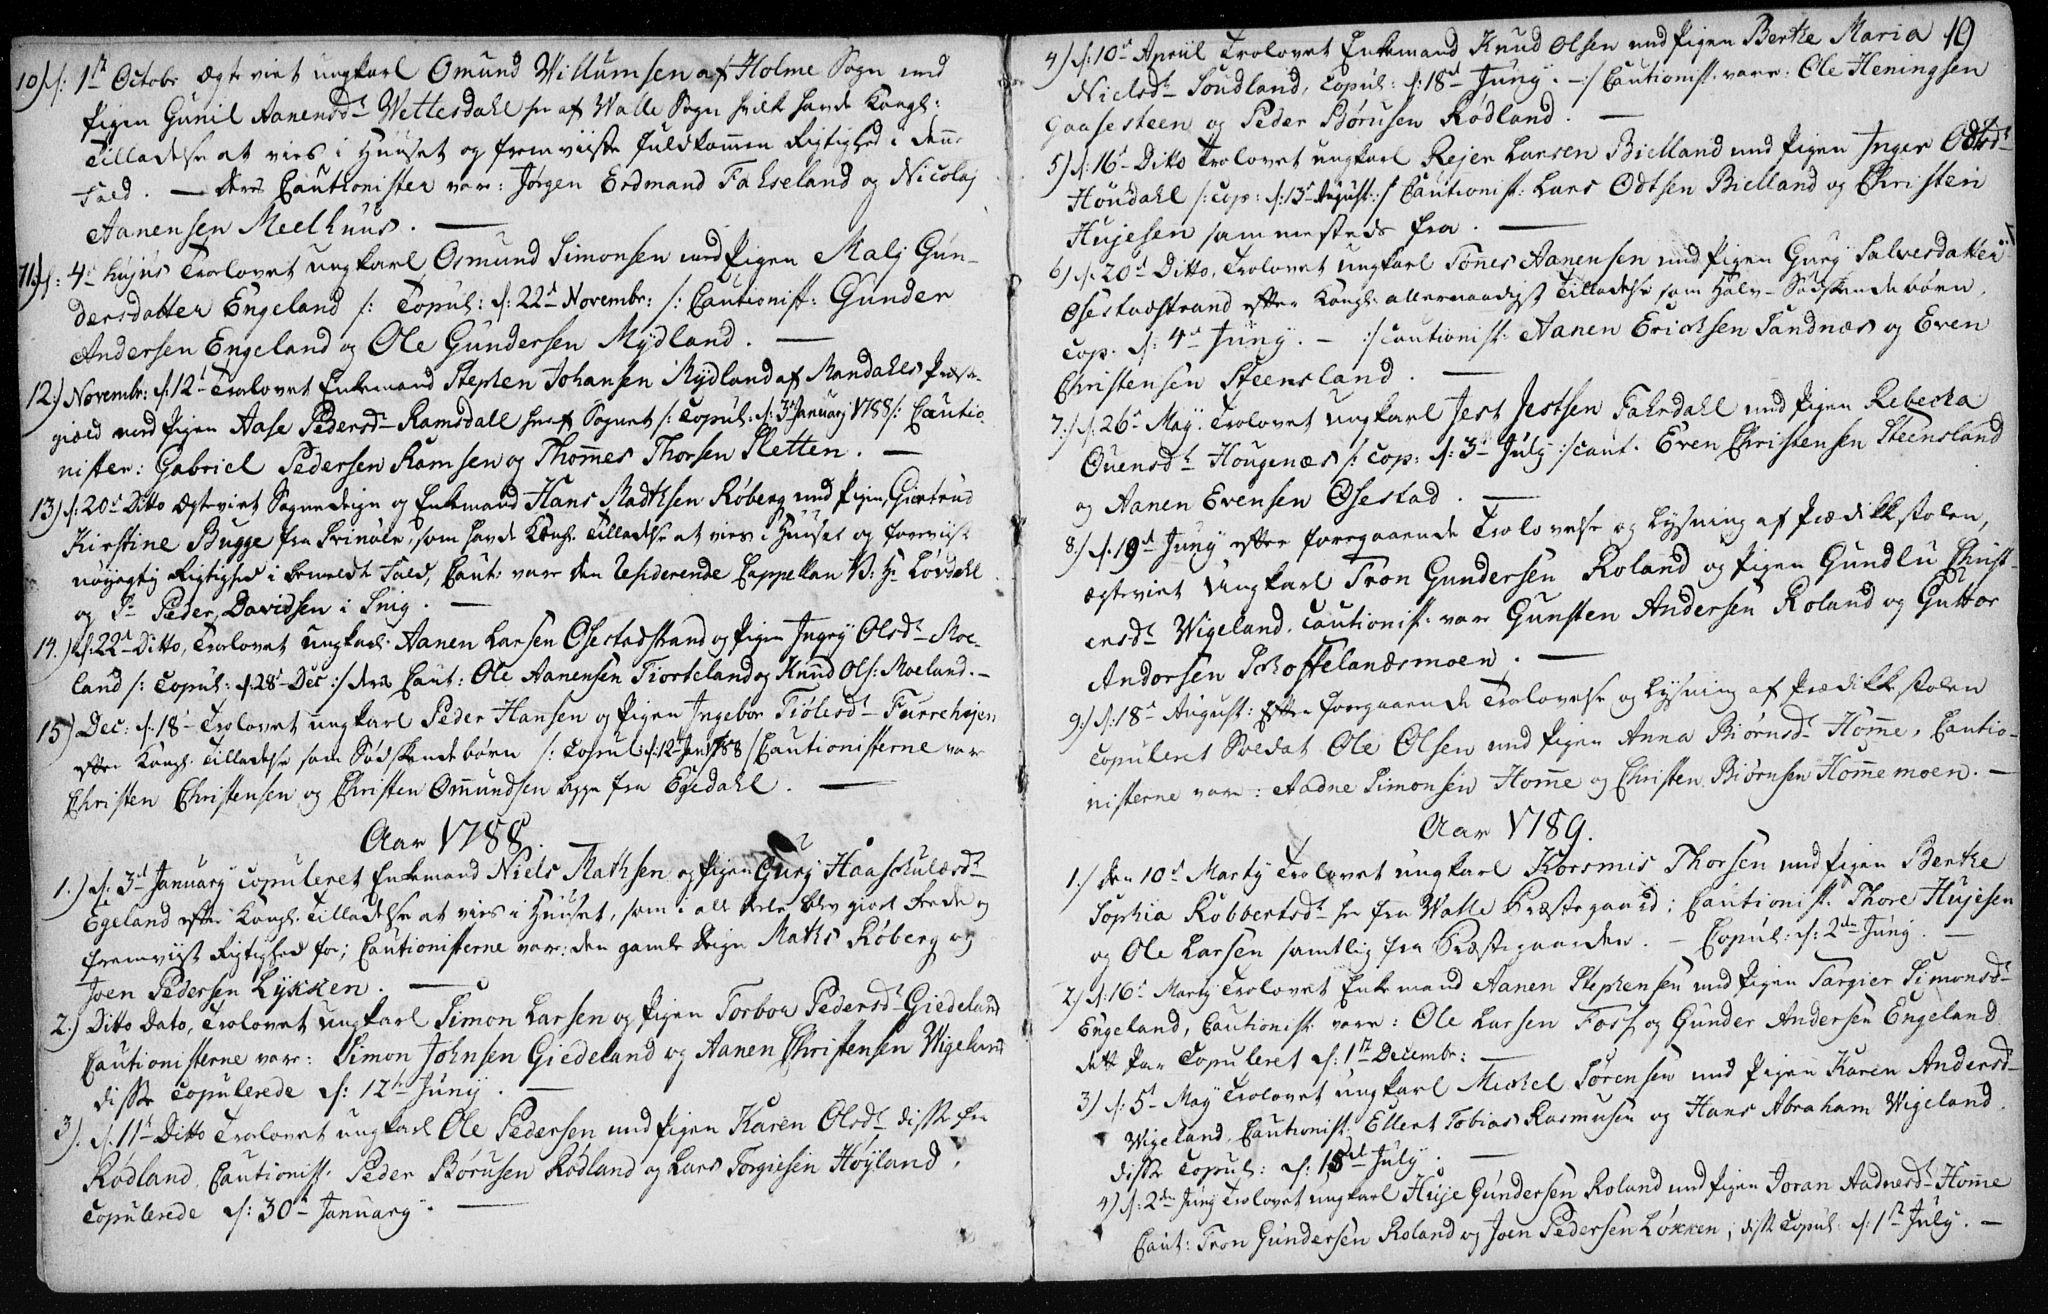 10) d: 1ste Octobr ægteviet ungkarl Omund Willumsen af Holme Sogn med
Pigen Gunil Aanensdt Wettesdahl her af Walle Sogn hvilk havde Kongl:
Tilladelse at vies i Huuset og fremviiste fuldkommen Rigtighed i denne
Fald. — deres Cautionister var: Jørgen Erdmand Fahseland og Nicolaj
Aanensen Meelhuus. —
11) d: 4de hujus Trolovet ungkarl Osmund Simonsen med Pigen Malj Gun-
dersdatter Engeland /: Copul: d: 22de Novembr: /: Cautionist: Gunder
Andersen Engeland og Ole Gundersen Mydland. —
12) Novembr: d: 12te Trolovet Enkemand Stephen Johansen Mydland af Mandahls Præste-
gield med Pigen Aase Pedersdt Ramsdall her af Sognet /: Copul: d: 3die Januarj 1788 /: Cautio-
nister: Gabriel Pedersen Ramsen og Thommes Thorsen Sletten. —
13) d: 20de Ditto Ægteviet Sognedeign og Enkemand Hans Madthsen Røberg med Pigen Giertrud
Kirstine Bugge fra Svinøer, som havde Kongl. Tilladelse at vies i Huuset og foreviist
nøyagtig Rigtighed i bemeldte Fald, Caut: vare den Residerende Cappellan B: H: Løvdahl
og Sr Peder Davidsen i Snig. —
14) d: 22de Ditto, Trolovet Ungkarl Aanen Larsen Osestadstrand og Pigen Ingrj Olsdt Moe-
land /: Copul: d: 28de Dec :/ deres Caut: Ole Aanensen Tiorteland og Knud Ols: Moeland. —
15) Dec: d: 18de Trolovet ungkarl Peder Hansen og Pigen Ingebor Tiølesdt Furrehøjen
efter Kongl. Tilladelse som Sødskendebørn /: Copul: d: 12te Jan 1788 / Cautionisterne var
Christen Christensen og Christen Ommundsen begge fra Egedahl. —
Aar 1788.
1.) d: 3die January Copuleret Enkemand Niels Mathsen og Pigen Gurj Haaschulæsdt
Egeland efter Kongl. Tilladelse at vies i Huuset, som i alt dele blev giort Frede og
fremviist Rigtighed for; Cautionisterne vare: den gamle Deign Maths Røberg og
Joen Pedersen Lykken. —
2.) Ditto Dato, Trolovet Ungkarl Simon Larsen og Pigen Torbor Pedersdt Giedeland
Cautionisterne vare: Simon Johnsen Giedeland og Aanen Christensen Wigeland
disse Copulerede d: 12te Junij. —
3.) d: 11te Ditto Trolovet ungkarl Ole Pedersen med Pigen Karen Olsdt disse fra
Rødland, Cautionist. Peder Børusen Rødland og Lars Torgiesen Høyland,
Copulerede d: 30te January. —
19
4) d: 10de Apriil Trolovet Enkemand Knud Olsen med Pigen Berthe Maria
Nielsdt Soudland, Copul: d: 18de Junij. — :/ Cautionist. vare: Ole Heningsen
Gaasesteen og Peder Børusen Rødland. —
5) d: 16de Ditto Trolovet ungkarl Rejer Larsen Bielland med Pigen Inger Odtsdt
Høudahl /: Cop: d: 13de August :/ Cautionist: Lars Odtsen Bielland og Christen
Hujesen sammesteds fra. —
6) d: 20de Ditto, Trolovet ungkarl Tønnes Aanensen med Pigen Gurj Salvesdatter
Osestadstrand efter Kongl: allernaadigst Tilladelse som Halv-Sødskendebørn.
Cop. d: 4de Junij. — :/ Cautionist: Aanen Erichsen Sandnæs og Even
Christensen Steensland. —
7.) d: 26de May. Trolovet ungkarl Jest Jestsen Fahrdahl med Pigen Rebecka
Ouensdt Hougenæs /: Cop: d: 3die July :/ Caut. Even Christensen Steensland
og Aanen Evensen Osestad. —
8.) d: 19de Junij efter foregaaende Trolovelse og Lysning af Prædikkestolen,
ægteviet Ungkarl Tron Gundersen Roland og Pigen Gundlu Christ-
ensdt Wigeland. Cautionist. var Gunsten Andersen Roland og Guttor
Andorsen Schoffelandsmoen. —
9.) d: 18de August: Efter foregaaende Trolovelse og Lysning af Prædikkestolen
Copuleret Soldat Ole Olsen med Pigen Anna Biørnsdt Homme, Cautio-
nisterne vare: Aadne Simonsen Homme og Christen Biørnsen Hommemoen. —
Aar 1789.
1.) Den 10de Martj Trolovet ungkarl Korsmis Thorsen med Pigen Berthe
Sophia Robbertsdt her fra Walle Præstegaard; Cautionist. Thore Hujesen
og Ole Larsen samtlig fra Præstegaarden. — Copul: d: 2den Junij. —
2.) d: 16de Martj Trolovet Enkemand Aanen Stephensen med Pigen Targier Simonsdt
Engeland, Cautionist. vare: Ole Larsen Foss og Gunder Andersen Engeland
dette Par Copuleret d: 1ste Decembr: —
3.) d: 5te May Trolovet ungkarl Michel Sørensen med Pigen Karen Andersdt
Wigeland, Cautionist. Ellert Tobias Rasmusen og Hans Abraham Wigeland.
disse Copul: d: 15de July. —
4) d: 2den Junij Trolovet ungkarl Huje Gundersen Roland med Pigen Joran Aadnesdt Homme
Caut: Tron Gundersen Roland og Joen Pedersen Løkken; disse Copul: d: 1ste July. —